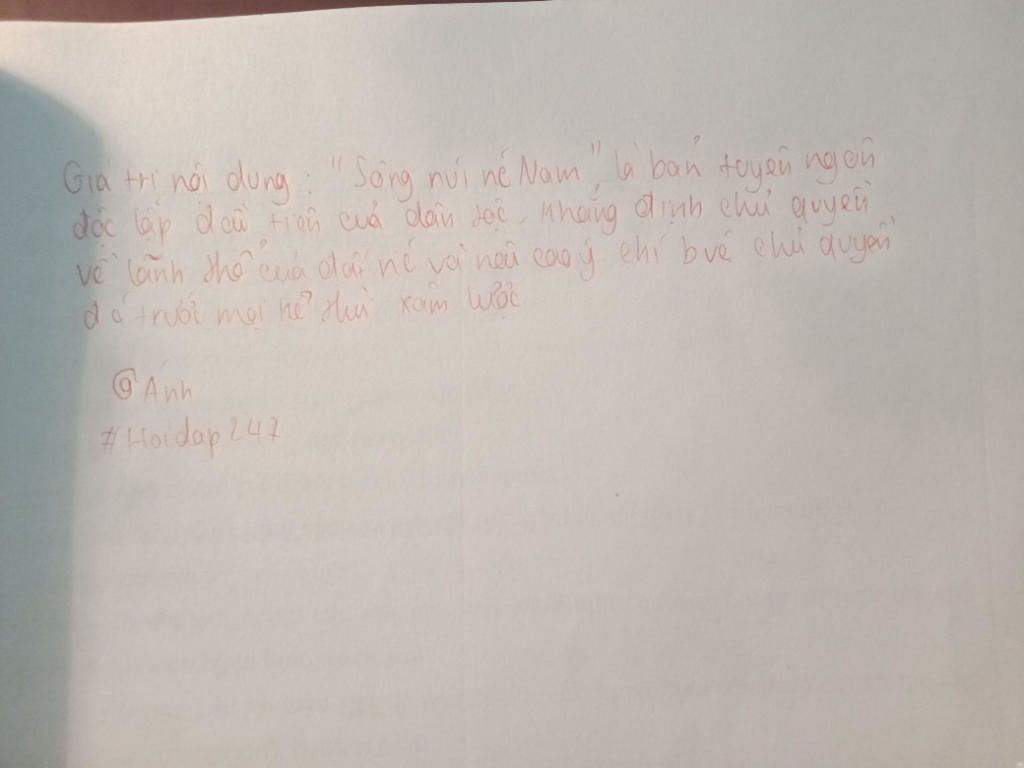 Giá trị nội dung : "Sông núi nc Nam" là bản tuyên ngôn
độc lập đầu tiên của dân tộc, khẳng định chủ quyền
về lãnh thổ của đất nc và nêu cao ý chí bvệ chủ quyền
đó trước mọi kẻ thù xâm lược
@Ánh
#Hoidap247